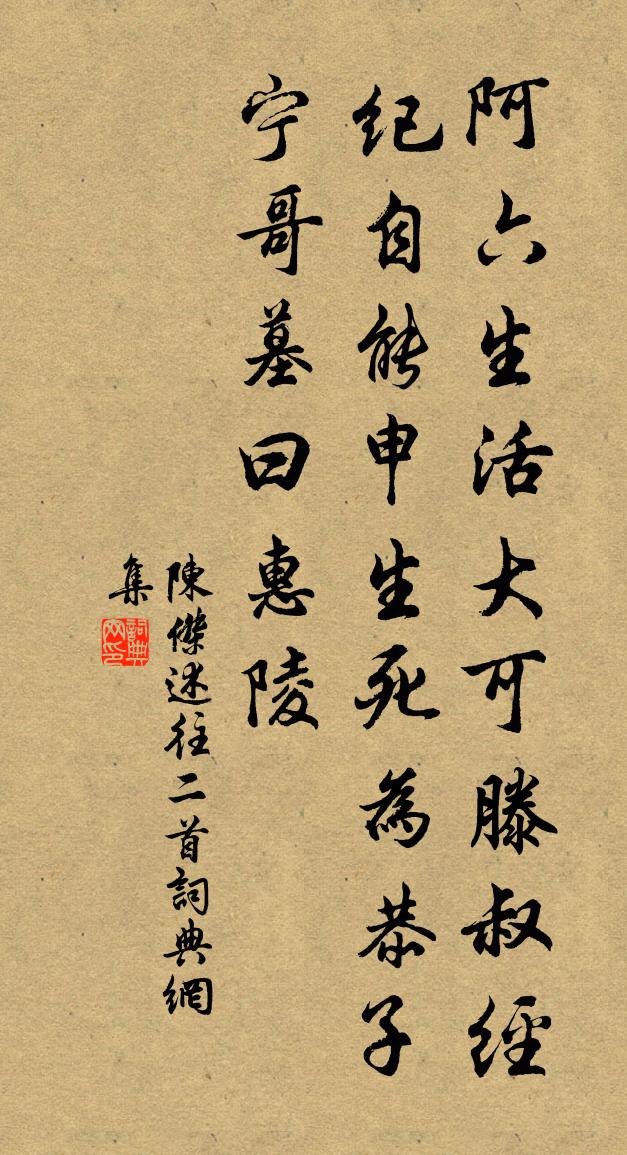 阿六生活大可滕叔經
紀自能申生死為恭子
宁哥墓曰惠陵
陳傑述往二首詞典網
集
詞典
网印